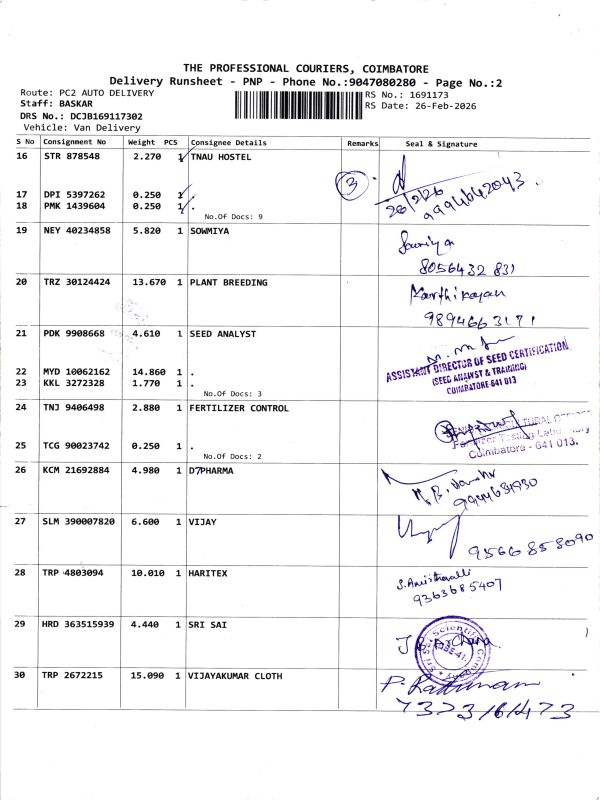 THE PROFESSIONAL COURIERS, COIMBATORE
Delivery Runsheet - PNP - Phone No.:9047080280 - Page No.:2
Route: PC2 AUTO DELIVERY
RS No.: 1691173
Staff: BASKAR
RS Date: 26-Feb-2026
DRS No.: DCJB169117302
Vehicle: Van Delivery
S No Consignment No Weight PCS Consignee Details Remarks Seal & Signature
16 STR 878548 2.270 1 TNAU HOSTEL
3
17 DPI 5397262 0.250 1 .
26/2/26
18 PMK 1439604 0.250 1 .
9994642043.
No.Of Docs: 9
19 NEY 40234858 5.820 1 SOWMIYA
8056432 831
20 TRZ 30124424 13.670 1 PLANT BREEDING
Karthikayan
9894663171
21 PDK 9908668 4.610 1 SEED ANALYST
ASSISTANT DIRECTOR OF SEED CERTIFICATION
22 MYD 10062162 14.860 1 .
(SEED ANALYST & TRAINING)
23 KKL 3272328 1.770 1 .
COIMBATORE-641 013
No.Of Docs: 3
24 TNJ 9406498 2.880 1 FERTILIZER CONTROL
Fertilizer Testing Laboratory
25 TCG 90023742 0.250 1 .
Coimbatore - 641 013.
No.Of Docs: 2
26 KCM 21692884 4.980 1 D7PHARMA
27 SLM 390007820 6.600 1 VIJAY
95668 58090
28 TRP 4803094 10.010 1 HARITEX
9363685407
29 HRD 363515939 4.440 1 SRI SAI
Sri Sai Scientific Company
30 TRP 2672215 15.090 1 VIJAYAKUMAR CLOTH
7373161473